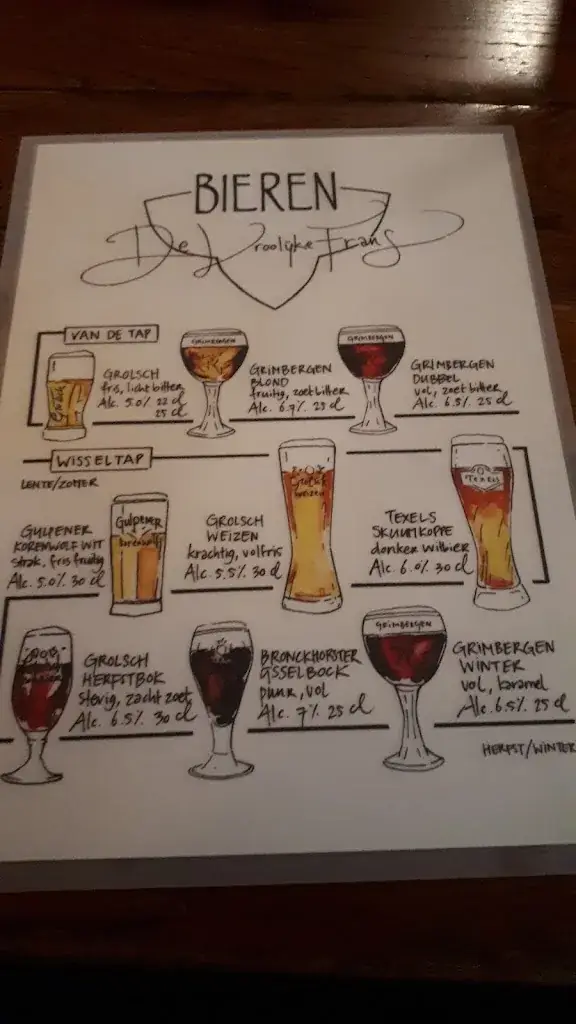 BIEREN
De Vroolijke Frans
VAN DE TAP
GROLSCH
fris, licht bitter
Alc. 5.0% 22 cl
25 cl
GRIMBERGEN
GRIMBERGEN
BLOND
fruitig, zoet bitter
Alc 6.7% 25 cl
GRIMBERGEN
GRIMBERGEN
DUBBEL
vol, zoet bitter
Alc. 6.5% 25 cl
WISSELTAP
LENTE/ZOMER
GULPENER
KORENWOLF WIT
strak, fris fruitig
Alc. 5.0% 30 cl
Gulpener
Korenwolf
GROLSCH
WEIZEN
krachtig, vol fris
Alc. 5.5% 30 cl
Grolsch
weizen
TEXELS
SKUUMKOPPE
donker witbier
Alc. 6.0% 30 cl
TEXELS
GROLSCH
HERFSTBOK
stevig, zacht zoet
Alc. 6.5% 30 cl
BRONCKHORSTER
IJSSELBOCK
puur, vol
Alc. 7% 25 cl
GRIMBERGEN
GRIMBERGEN
WINTER
vol, karamel
Alc. 6.5% 25 cl
HERFST/WINTER